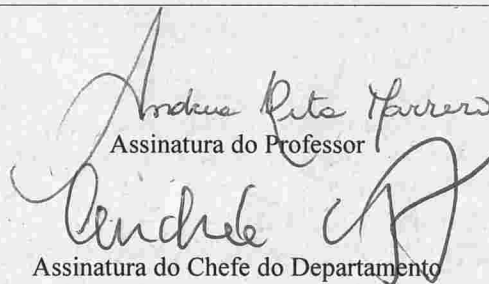 Andrea Rita Marrero
Assinatura do Professor
Assinatura do Chefe do Departamento